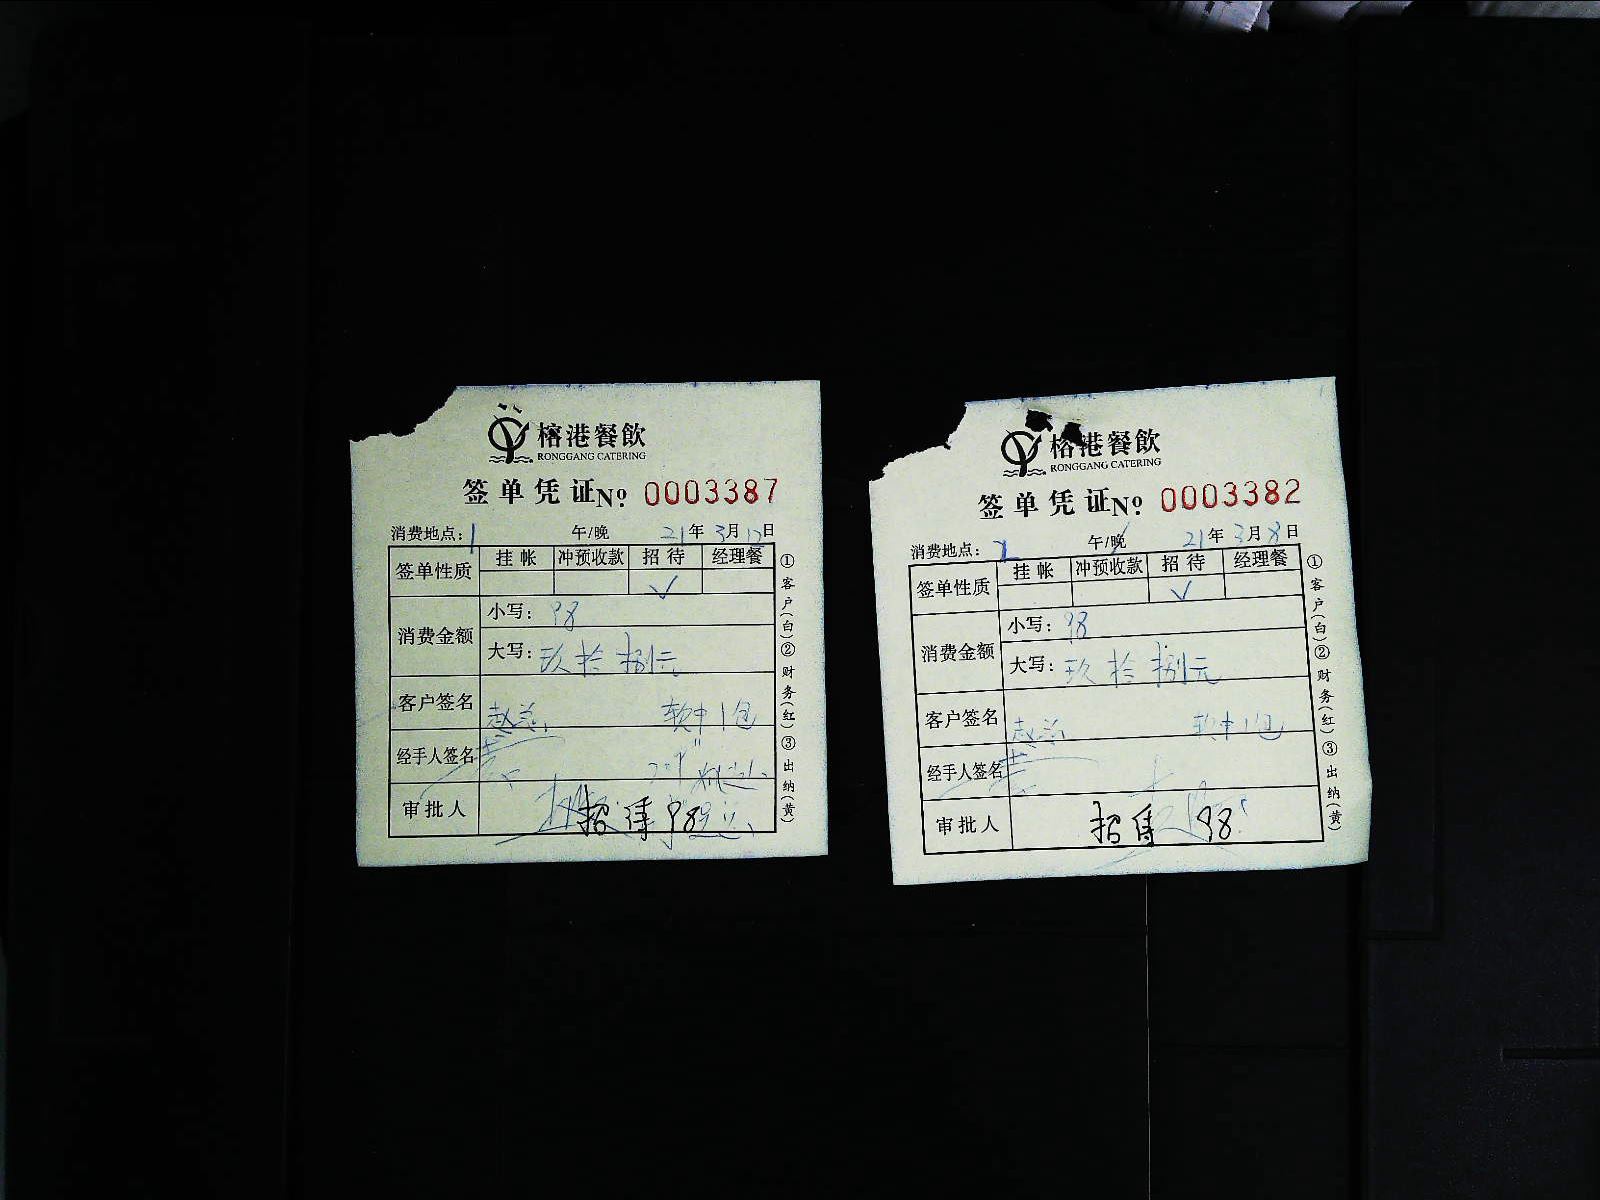 榕港餐飲
RONGGANG CATERING
签单凭证 № 0003387
消费地点: 1 午/晚 21年3月12日
签单性质 挂帐 冲预收款 招待 经理餐
✓
消费金额 小写: 98
大写: 玖拾捌元
客户签名 赵总 软中1包
经手人签名
审批人 招待98
①客户(白)②财务(红)③出纳(黄)
榕港餐飲
RONGGANG CATERING
签单凭证 № 0003382
消费地点: 午/晚 21年3月8日
签单性质 挂帐 冲预收款 招待 经理餐
✓
消费金额 小写: 98
大写: 玖拾捌元
客户签名 赵总 软中1包
经手人签名
审批人 招待 98
①客户(白)②财务(红)③出纳(黄)